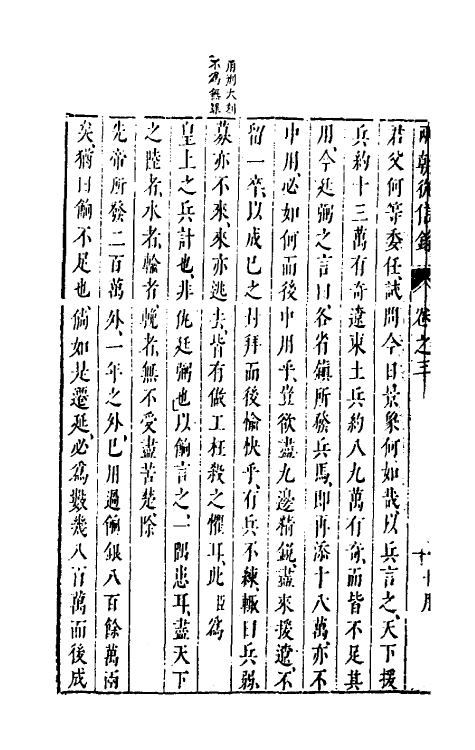 兩朝從信錄 卷之三
君父何等委任試問今日景象何如哉以兵言之天下援
兵約十三萬有奇遼東土兵約八九萬有奇而皆不足其
用今廷弼之言曰各省鎮所發兵馬即再添十八萬亦不
中用必如何而後中用乎豈欲盡九邊精銳盡來援遼不
留一卒以成已之封拜而後愉快乎有兵不練輒曰兵弱
募亦不來來亦逃去皆有做工枉殺之懼耳此臣爲
皇上之兵計也非仇廷弼也以餉言之一隅患耳盡天下
之陸者水者輸者輓者無不受盡苦楚除
先帝所發二百萬外一年之外已用過餉銀八百餘萬兩
矣猶曰餉不足也倘如是遷延必爲數幾八百萬而後成
用刑大刻
不爲無罪